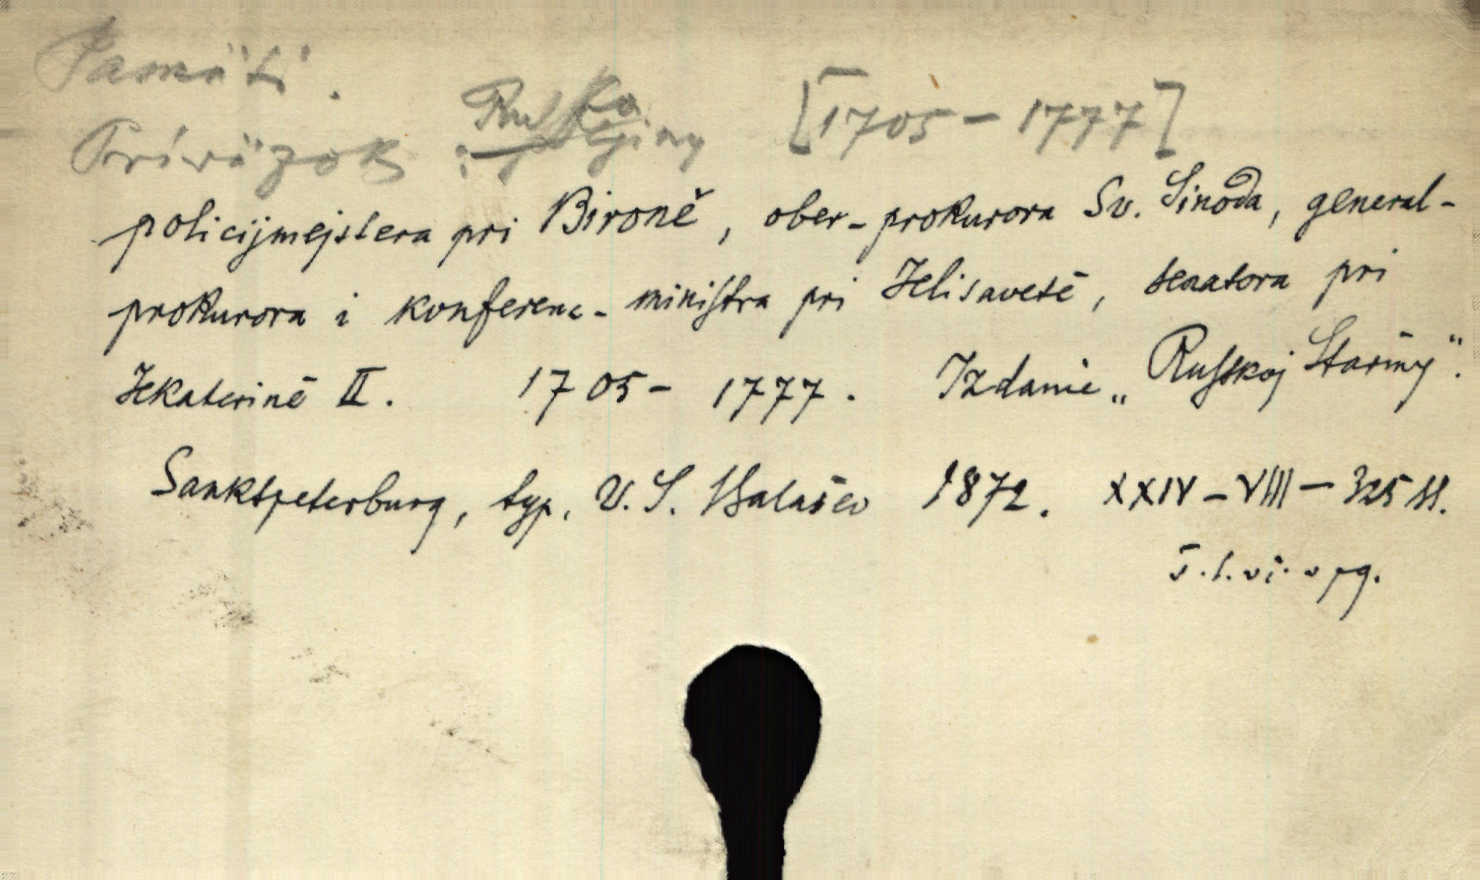 Pamäti.
Prívázok [1705-1777]
policijmejstera pri Bironě, ober-prokurora Sv. Sinoda, general-
prokurora i konferenc-ministra pri Jelisavetě, senatora pri
Jekaterině II. 1705-1777. Izdanie „Russkoj Stariny".
Sanktpeterburg, typ. V. S. Balašev 1872. XXIV-VIII-325 ss.